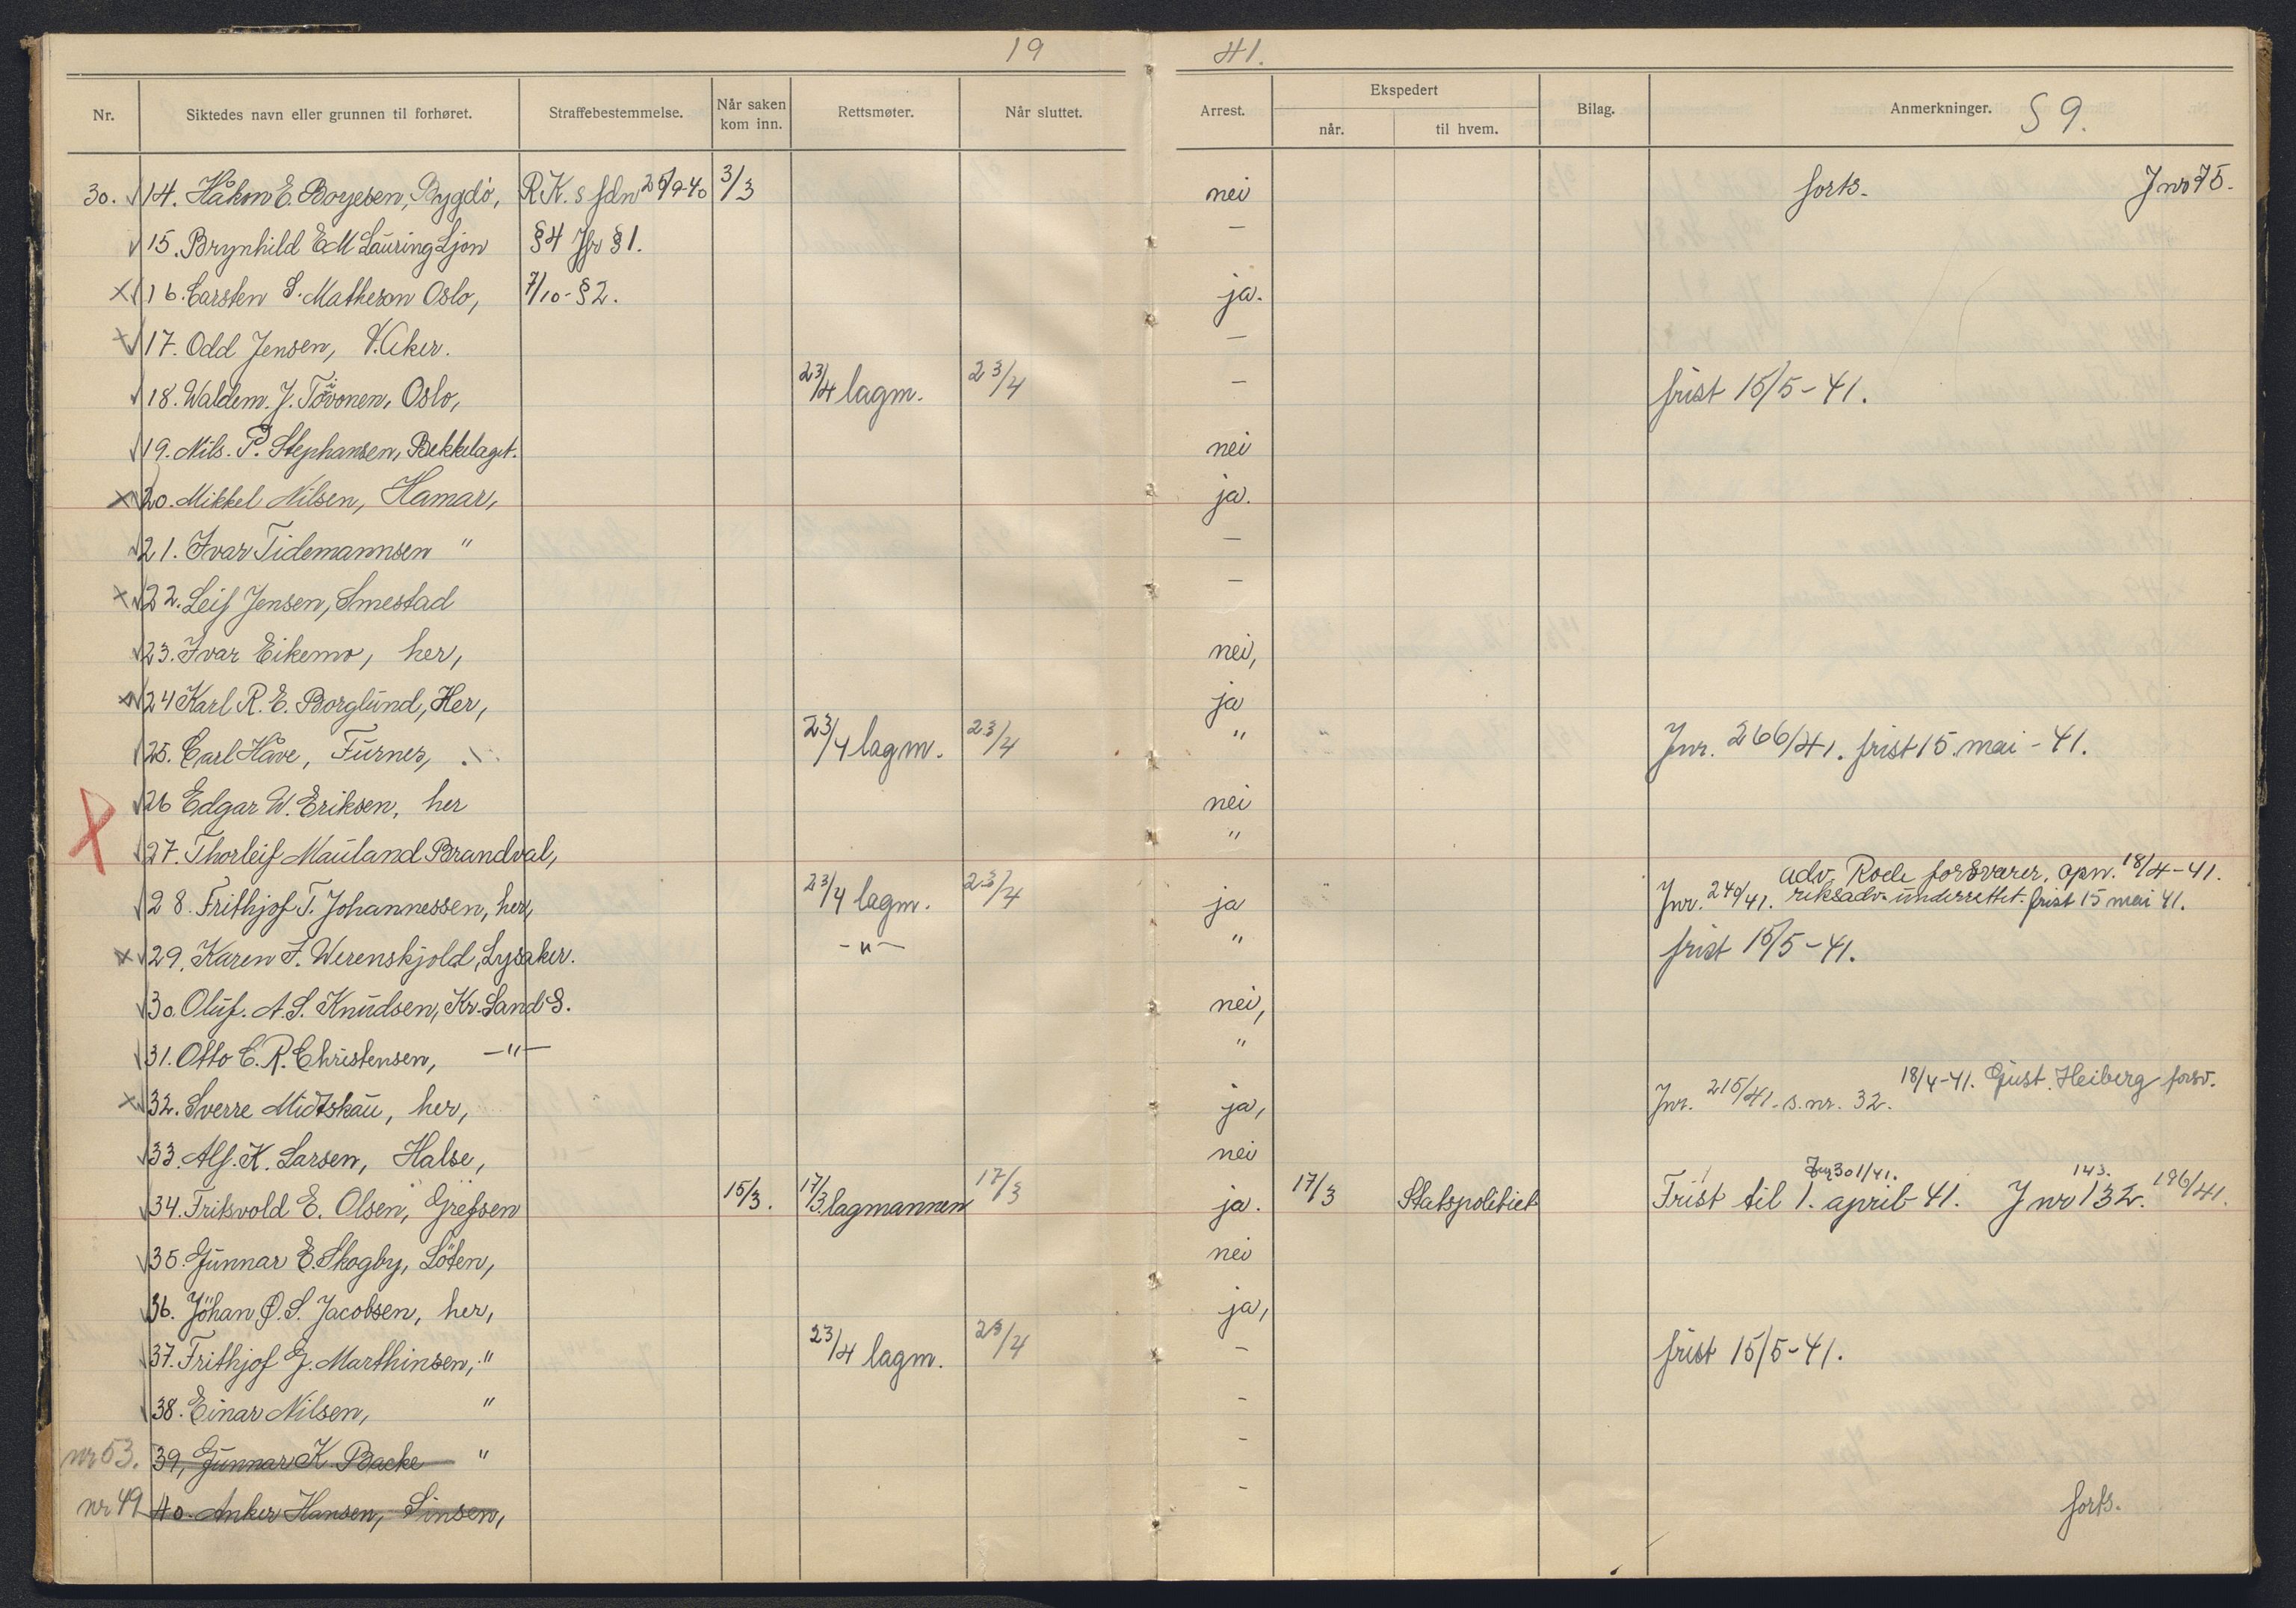 19 41.
Nr. Siktedes navn eller grunnen til forhøret. Straffebestemmelse. Når saken kom inn. Rettsmøter. Når sluttet. Arrest. Ekspedert når. til hvem. Bilag. Anmerkninger. § 9.
30. 14. Håkon E. Boyesen, Bygdö, R.K.s fdn 25/9-40 3/3 nei forts. J nr 75.
15. Brynhild E M Lauring Ljan § 4 Jfr § 1. —
x 16. Carsten S. Matheson Oslo, 7/10 - § 2. ja.
x 17. Odd Jensen, V. Aker. —
18. Waldem. J. Tövonen, Oslo, 23/4 lagm. 23/4 — frist 15/5-41.
19. Nils. P. Stephansen, Bekkelaget. nei
x 20. Mikkel Nilsen, Hamar, ja.
21. Ivar Tidemannsen " —
x 22. Leif Jensen, Smestad —
23. Ivar Eikemo, her, nei,
x 24 Karl R. E. Borglund, Her, ja
25. Carl Håve, Furnes, 23/4 lagm. 23/4 " Jnr. 266/41. frist 15. mai - 41.
X 26 Edgar W. Eriksen, her nei
27. Thorleif Mauland Brandval, "
adv. Rode forsvarer, opn. 18/4-41.
28. Frithjof T. Johannessen, her, 23/4 lagm. 23/4 ja Jnr. 240/41. riksadv. underrettet. frist 15 mai 41.
x 29. Karen F. Werenskjold, Lysaker. -"- " frist 15/5-41.
30. Oluf. A. S. Knudsen, Kr. Sand S. nei,
31. Otto C. R. Christensen, —"— "
x 32. Sverre Midtskau, her, ja, Jnr. 215/41. s.nr. 32. 18/4-41. Gust. Heiberg forsv.
33. Alf. K. Larsen, Halse, nei
Jnr 301/41. 143.
34. Fritsvold E. Olsen, Grefsen 15/3. 17/3 lagmannen 17/3 ja. 17/3 Statspolitiet Frist til 1. april 41. J nr 132. 196/41.
35. Gunnar E. Skogby, Löten, nei
36. Johan Ø. S. Jacobsen, her, ja,
37. Frithjof G. Marthinsen, " 23/4 lagm. 23/4 — frist 15/5-41.
38. Einar Nilsen, " -
nr 53. 39, Gunnar K. Backe " -
nr 49 40. Anker Hansen, Sinsen, - forts.